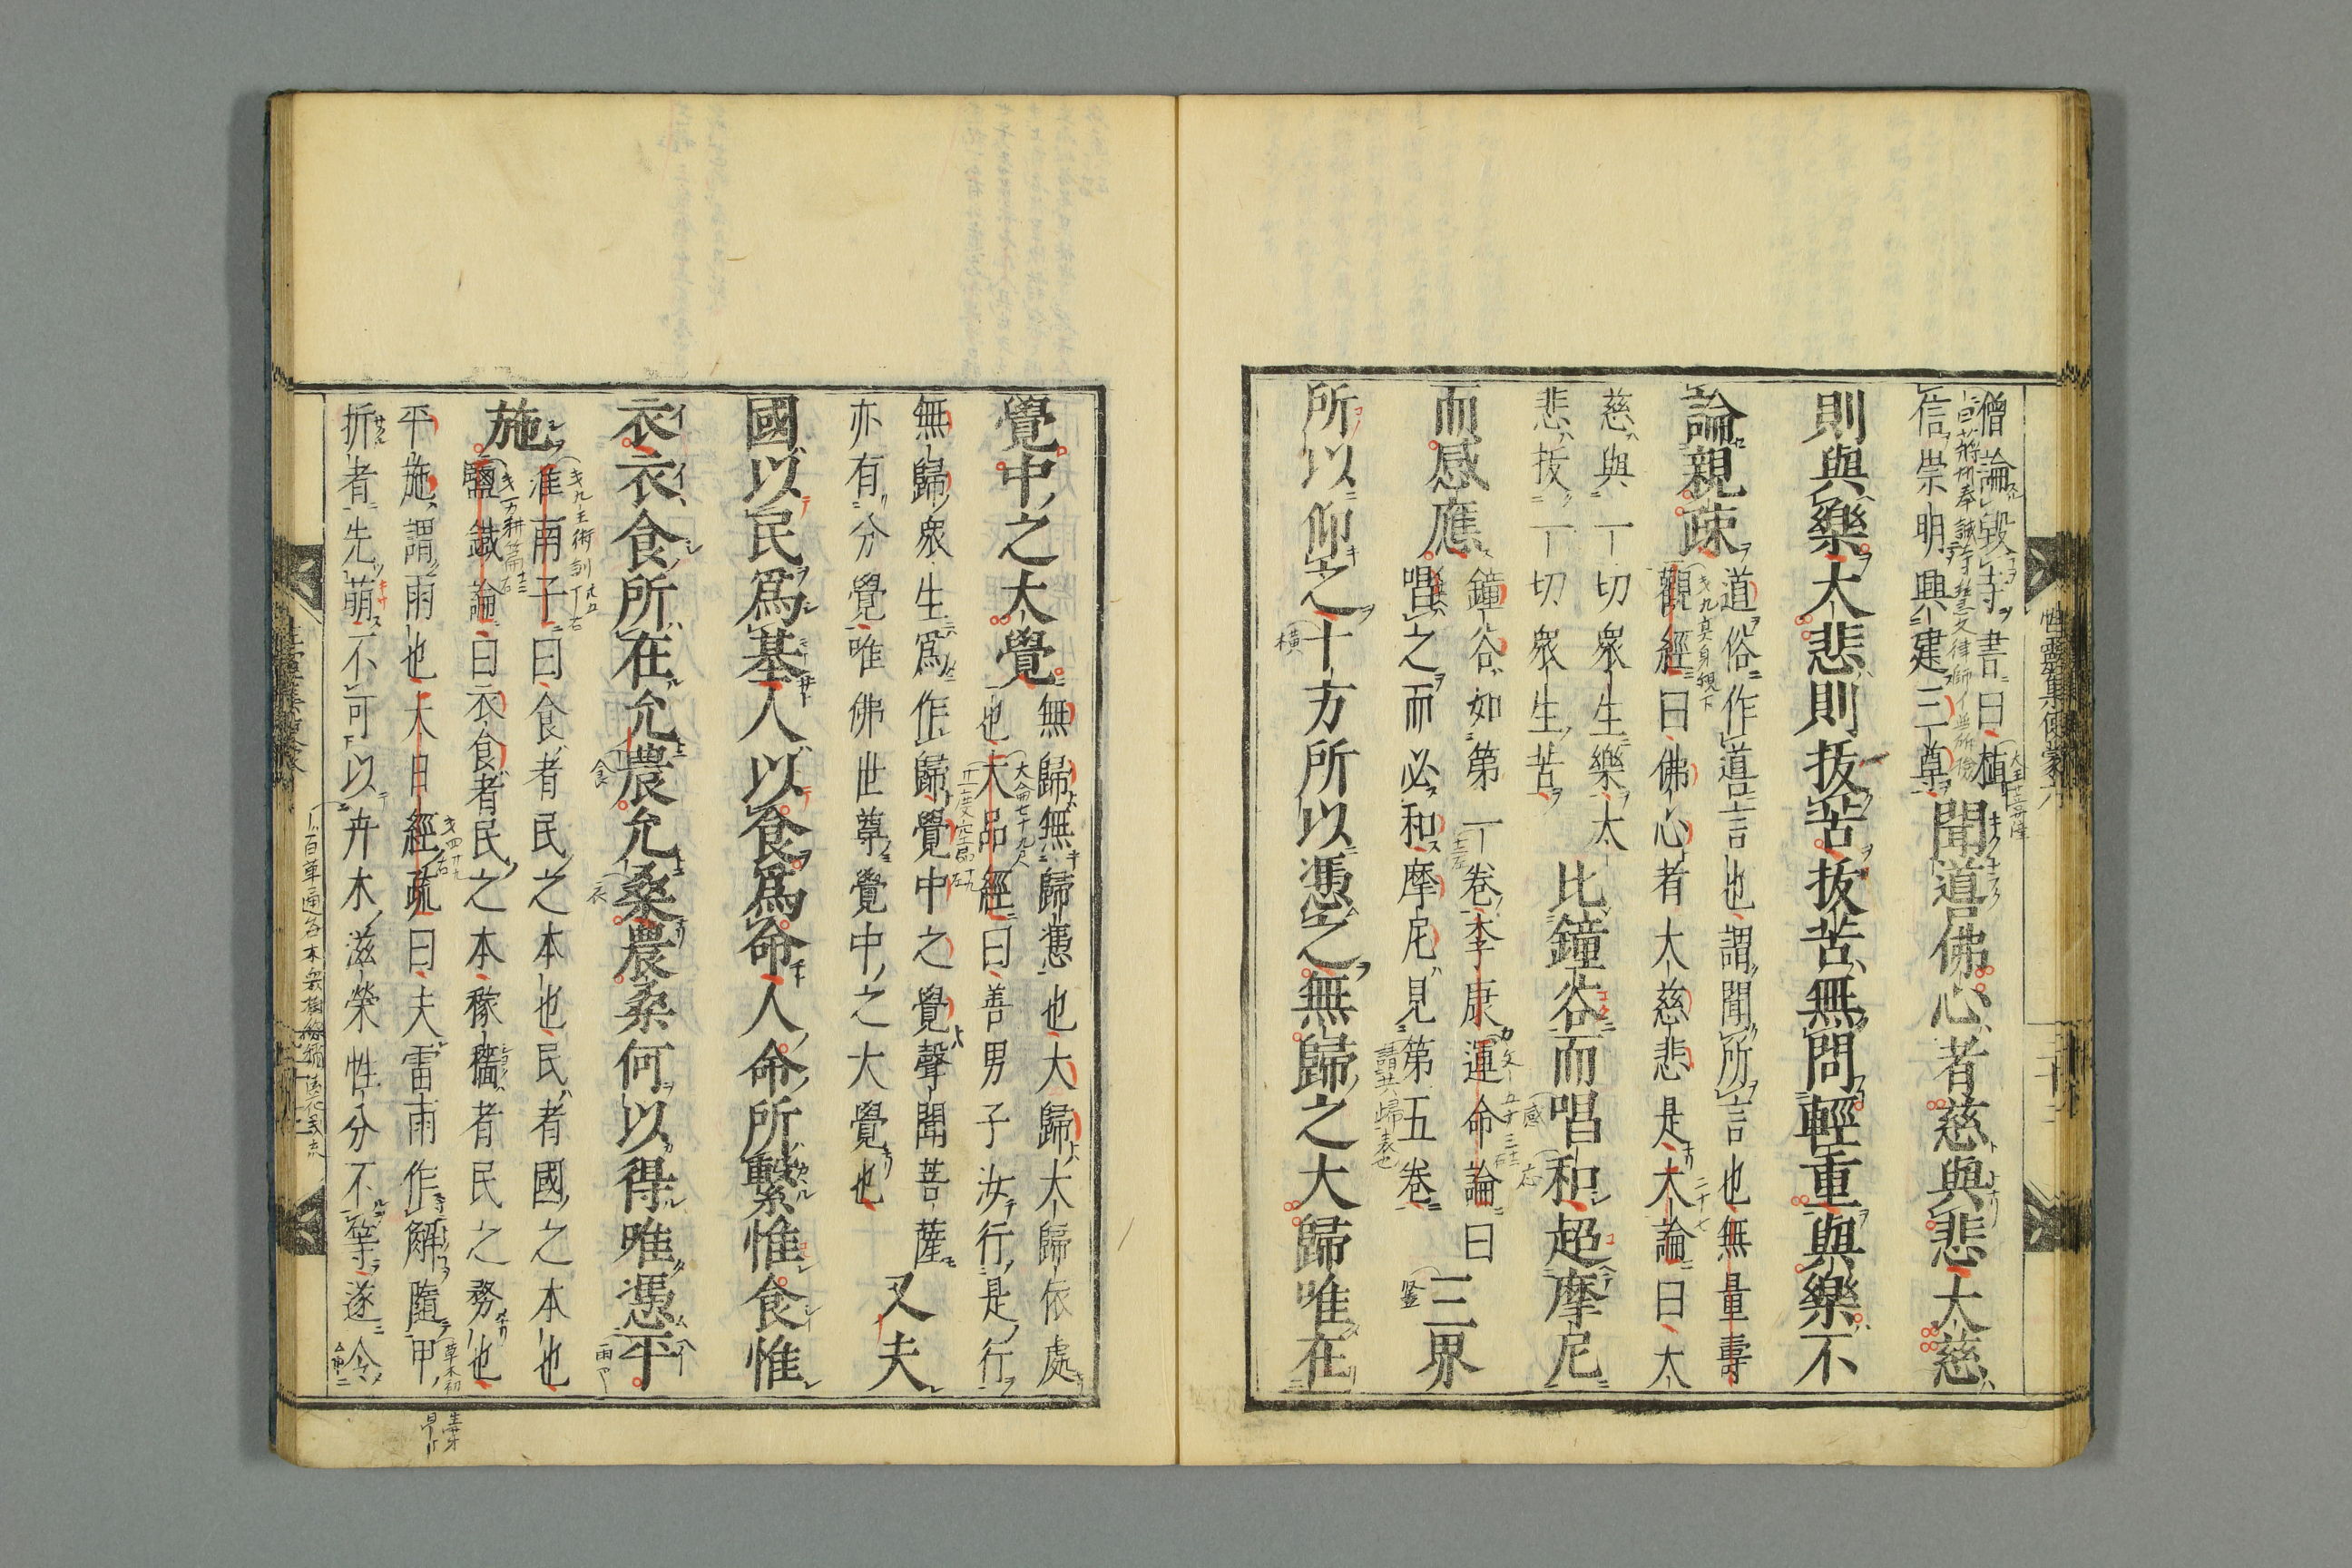 僧論毀寺書曰植
信崇明興建三尊
聞道佛心者慈與悲大慈
則與樂大悲則拔苦拔苦無問輕重與樂不
論親疎
道俗作道言也謂聞所言也無量壽
觀經曰佛心者大慈悲是大論曰大
慈與一切衆生樂大
悲拔一切衆生苦
比鐘谷而唱和超摩尼
而感應
鐘谷如第一卷李康運命論曰
唱之而必和摩尼見第五卷
三界
所以仰之十方所以憑之無歸之大歸唯在
性靈集便蒙六
覺中之大覺
無歸無歸憑也大歸大歸依處
也大品經曰善男子汝行是行
無歸衆生爲作歸覺中之覺聲聞菩薩
亦有分覺唯佛世尊覺中之大覺也
又夫
國以民爲基人以食爲命人命所繫惟食惟
衣衣食所在允農允桑農桑何以得唯憑平
施
淮南子曰食者民之本也民者國之本也
鹽鐵論曰衣食者民之本稼穡者民之務也
平施謂雨也大日經疏曰夫雷雨作解隨甲
折者先萌不可以卉木滋榮性分不等遂令